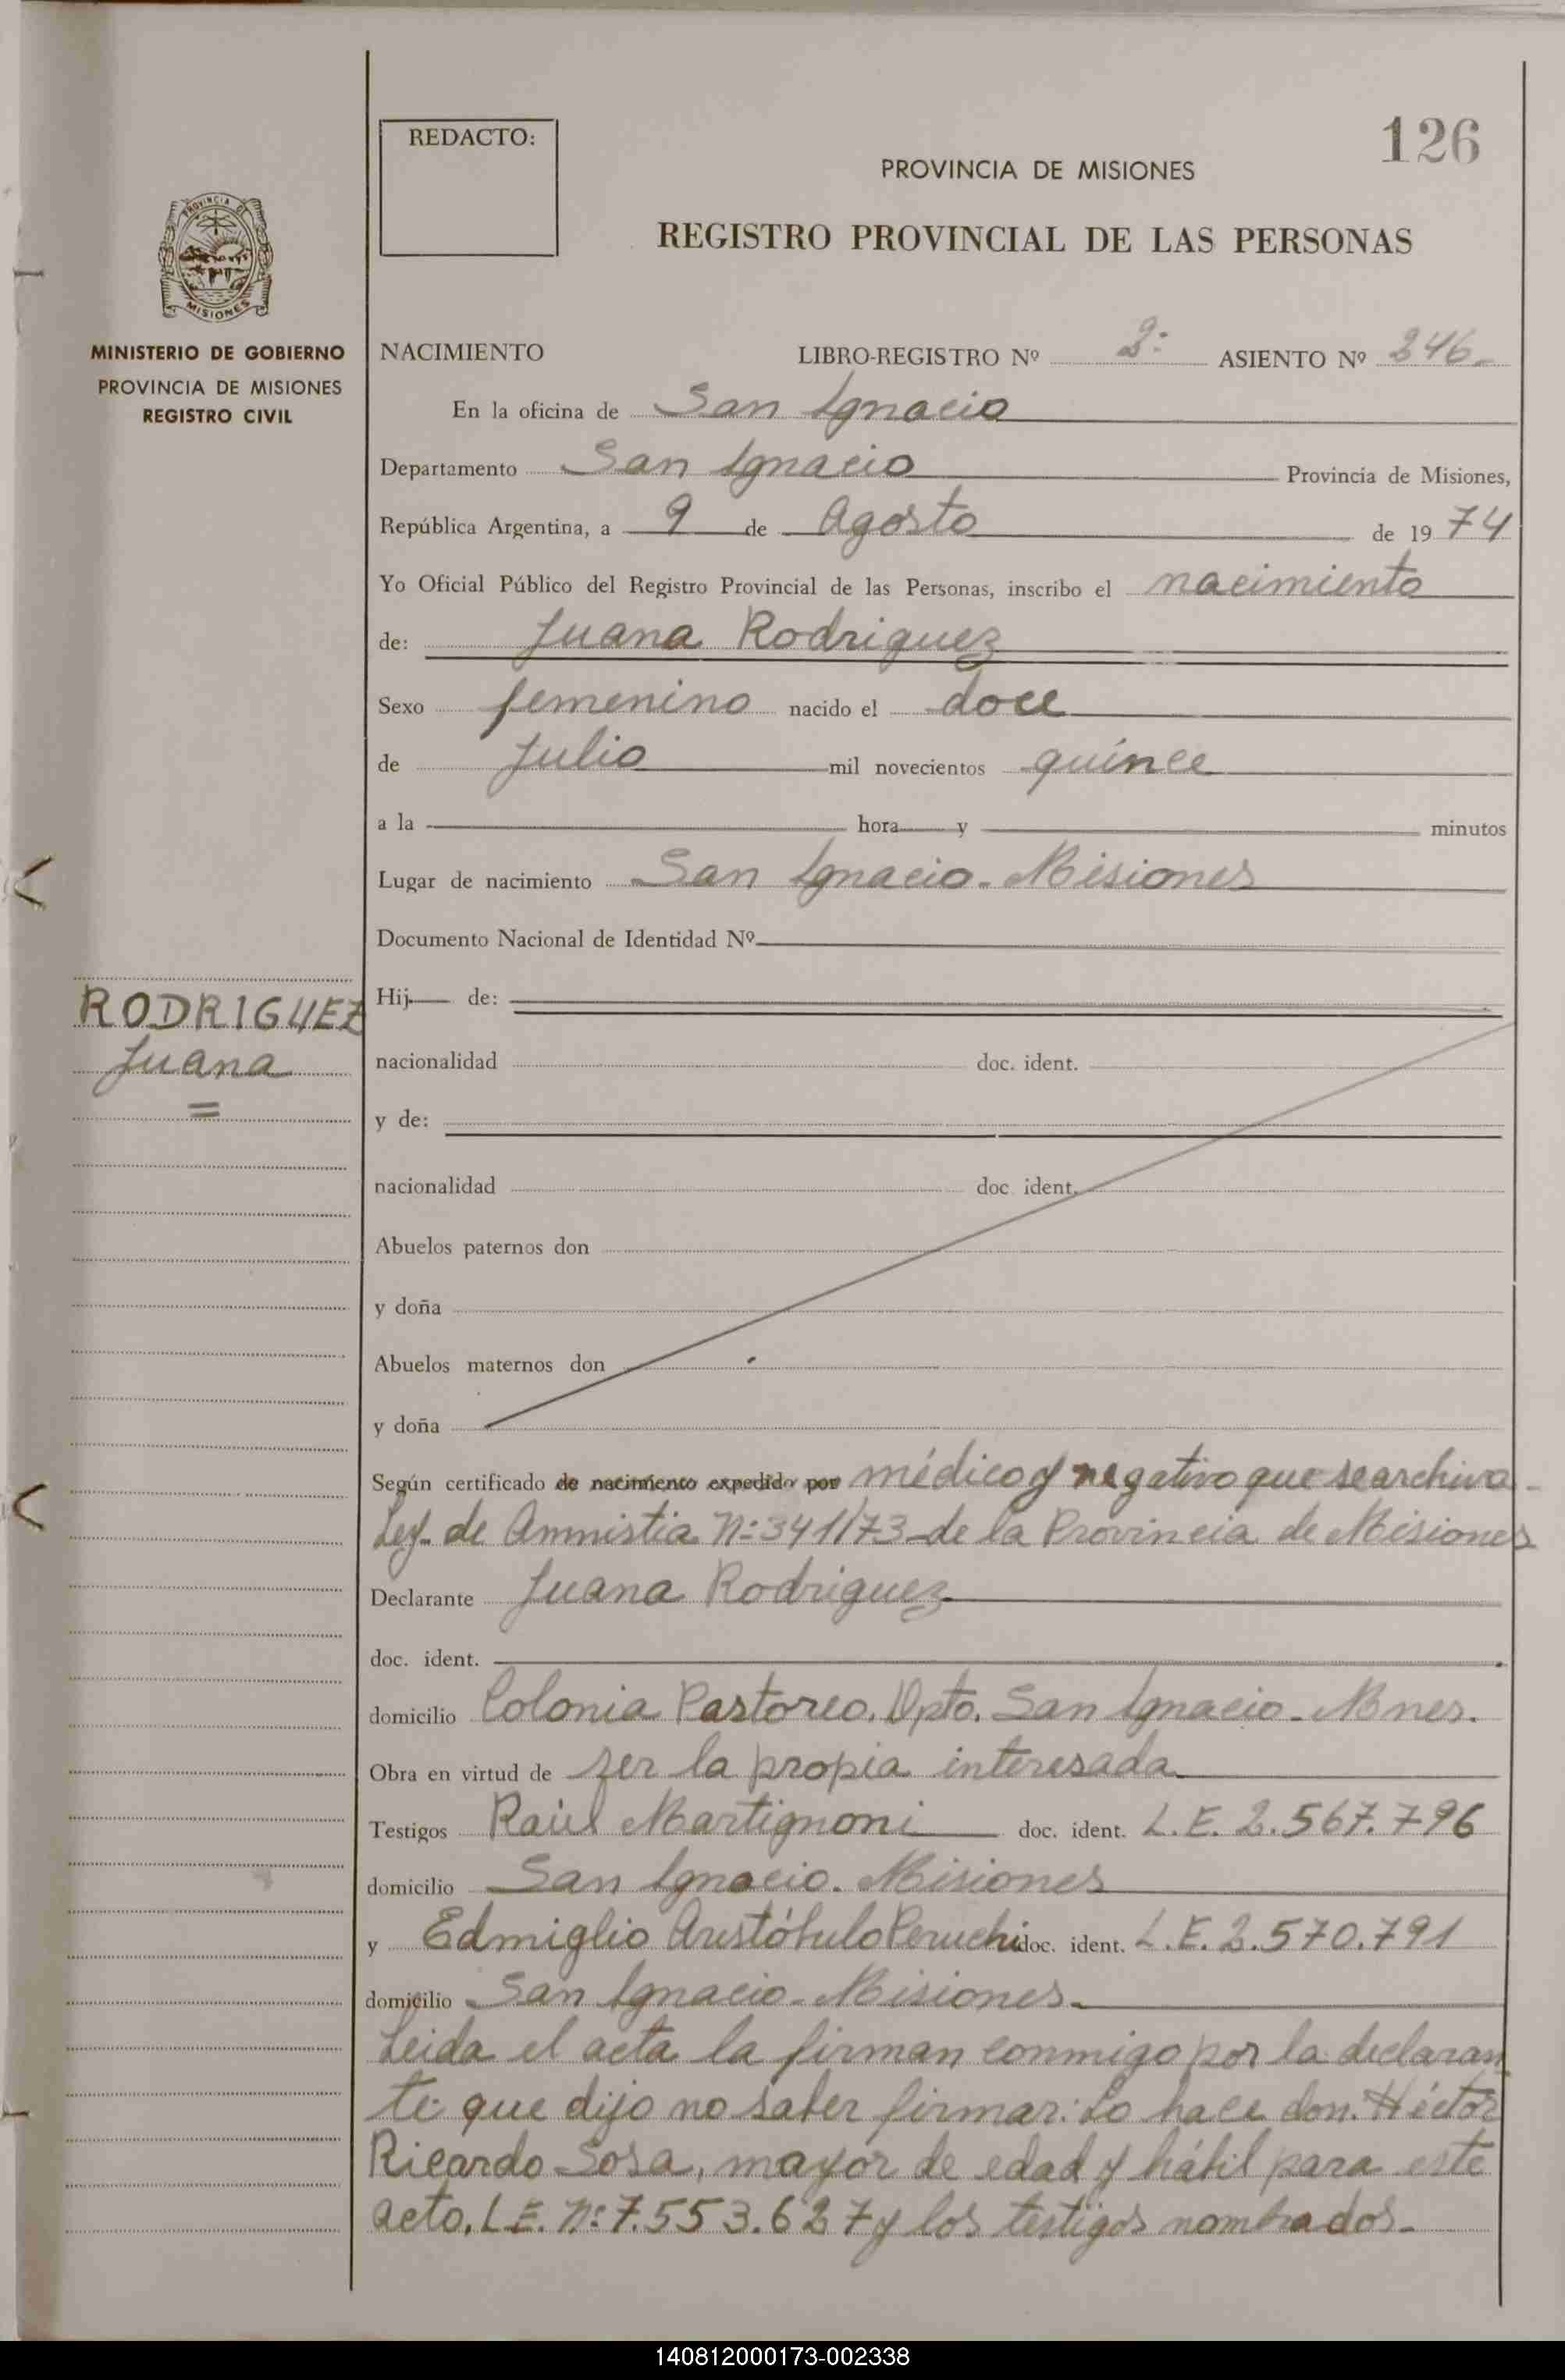 126
REDACTO:
PROVINCIA DE MISIONES
REGISTRO PROVINCIAL DE LAS PERSONAS
PROVINCIA DE
MISIONES
MINISTERIO DE GOBIERNO
PROVINCIA DE MISIONES
REGISTRO CIVIL
NACIMIENTO LIBRO-REGISTRO Nº 2º ASIENTO Nº 246
En la oficina de San Ignacio
Departamento San Ignacio Provincia de Misiones,
República Argentina, a 9 de Agosto de 1974
Yo Oficial Público del Registro Provincial de las Personas, inscribo el nacimiento
de: Juana Rodriguez
Sexo femenino nacido el doce
de Julio mil novecientos quince
a la hora y minutos
Lugar de nacimiento San Ignacio - Misiones
Documento Nacional de Identidad Nº
RODRIGUEZ
Juana
=
Hij de:
nacionalidad doc. ident.
y de:
nacionalidad doc. ident.
Abuelos paternos don
y doña
Abuelos maternos don
y doña
Según certificado de nacimiento expedido por médico y negativo que se archiva -
Ley de Amnistia Nº 341/73 - de la Provincia de Misiones
Declarante Juana Rodriguez
doc. ident.
domicilio Colonia Pastoreo. Dpto. San Ignacio - Mnes.
Obra en virtud de ser la propia interesada
Testigos Raúl Martignoni doc. ident. L.E. 2.567.796
domicilio San Ignacio. Misiones
y Edmiglio Aristótulo Peruchi doc. ident. L.E. 2.570.791
domicilio San Ignacio - Misiones -
Leida el acta la firman conmigo por la declaran
te que dijo no saber firmar: Lo hace don. Héctor
Ricardo Sosa, mayor de edad y hábil para este
acto, L.E. Nº 7.553.627 y los testigos nombrados -
140812000173-002338